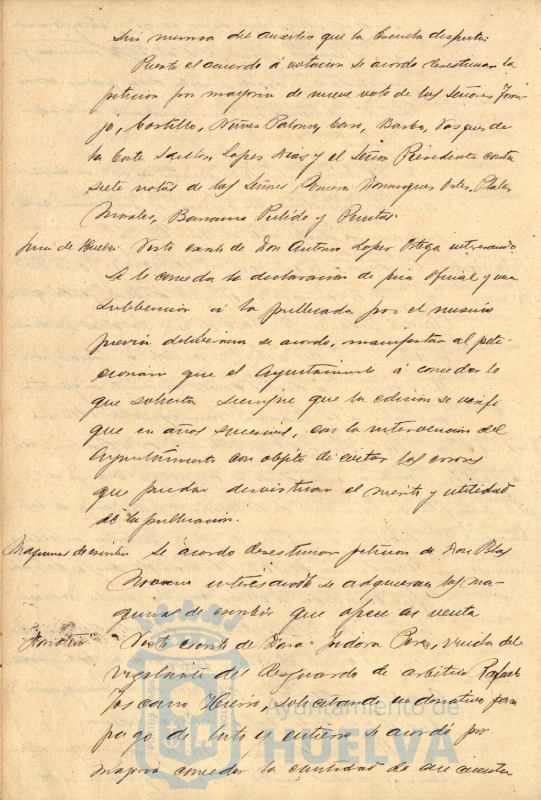 sin merma del auxilio que la Escuela disputa.
Puesto el acuerdo á votacion se acordo desestimar la
peticion por mayoria de nueve votos de los Señores
jo, Castillo, Nuñes Palomo, Caro, Barba, Vasques de
la Corte Lopes Dias y el Señor Presidente contra
siete votos de los Señores Domingues Plata
Morales, Barranco Pulido y Puntas.
Guia de Huelva Visto escrito de Don Antonio Lopes Ortega interesando
se le conceda la declaracion de guia oficial y una
subbencion á la publicada por el mismo
previa deliberacion se acordo, manifestar al peti-
cionario que el Ayuntamiento á conceder lo
que solicita siempre que la edicion se verifi
que en años sucesivos, con la intervencion del
Ayuntamiento con objeto de evitar los errores
que puedan desvirtuar el merito y utilidad
de la publicacion.
Maquinas de escribir Se acordo desestimar peticion de Don Blas
Moreno interesando se adquieran las ma-
quinas de escribir que ofrece en venta
Donativo Visto escrito de Doña Isidora Peres, viuda del
vigilante del Resguardo de arbitrios Rafael
Toscano Hierro, solicitando un donativo para
pago de luto y entierro se acordó por
mayoria conceder la cantidad de cincuenta
Ayuntamiento de
HUELVA